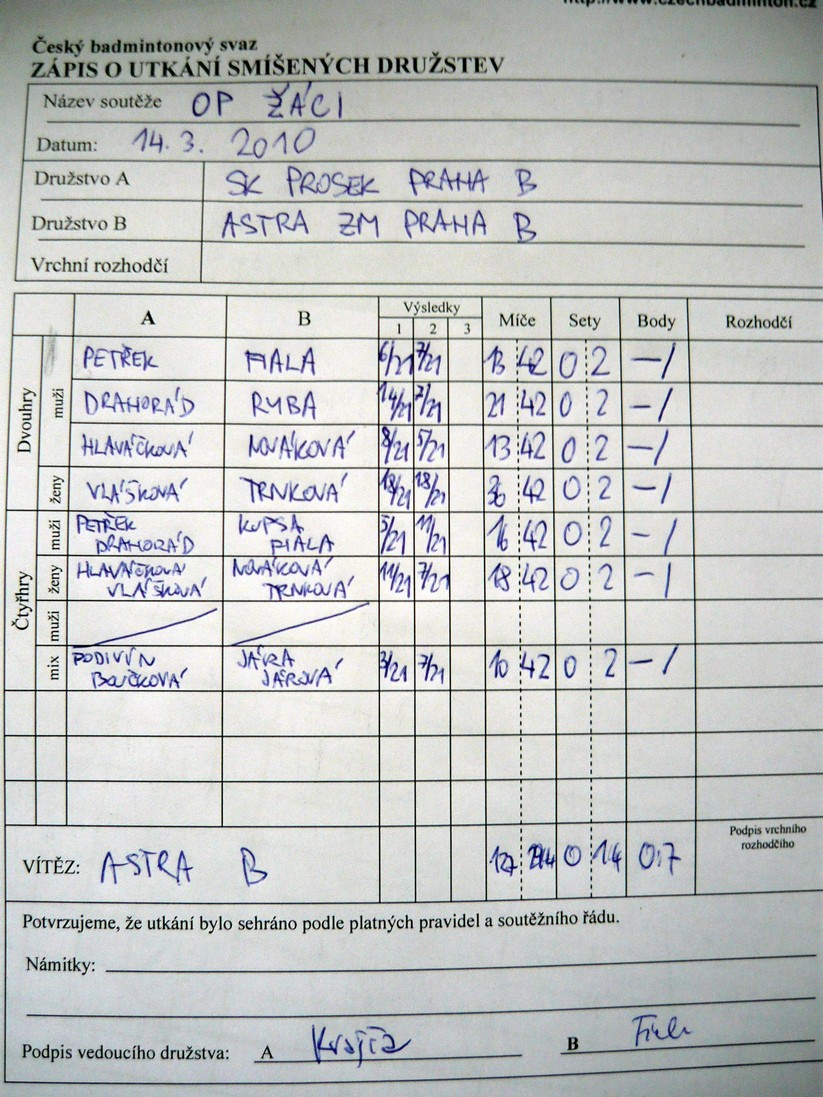 http://www.czechbadminton.cz
Český badmintonový svaz
ZÁPIS O UTKÁNÍ SMÍŠENÝCH DRUŽSTEV
Název soutěže OP ŽÁCI
Datum: 14. 3. 2010
Družstvo A SK PROSEK PRAHA B
Družstvo B ASTRA ZM PRAHA B
Vrchní rozhodčí
A B Výsledky Míče Sety Body Rozhodčí
1 2 3
Dvouhry
muži
PETŘEK FIALA 6/21 7/21 13 42 0 2 – 1
DRAHORÁD RYBA 14/21 7/21 21 42 0 2 – 1
HLAVÁČKOVÁ NOVÁKOVÁ 8/21 5/21 13 42 0 2 – 1
ženy
VLÁŠKOVÁ TRNKOVÁ 18/21 18/21 36 42 0 2 – 1
Čtyřhry
muži
PETŘEK KUPSA 5/21 11/21 16 42 0 2 – 1
DRAHORÁD FIALA
ženy
HLAVÁČKOVÁ NOVÁKOVÁ 11/21 7/21 18 42 0 2 – 1
VLÁŠKOVÁ TRNKOVÁ
muži
mix
PODIVÍN JÁRA 3/21 7/21 10 42 0 2 – 1
BOUČKOVÁ JÁROVÁ
VÍTĚZ: ASTRA B 127 294 0 14 0:7
Podpis vrchního
rozhodčího
Potvrzujeme, že utkání bylo sehráno podle platných pravidel a soutěžního řádu.
Námitky:
Podpis vedoucího družstva: A B